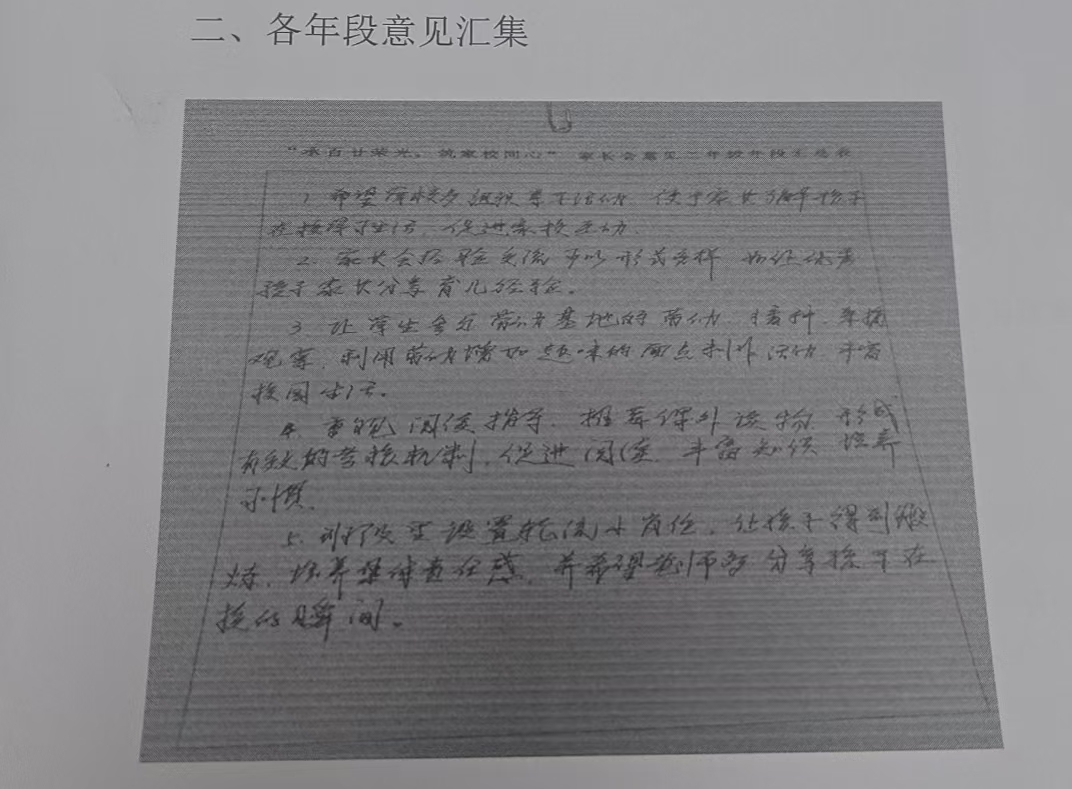 二、各年段意见汇集
"承百廿荣光，筑家校同心" 家长会意见二年级年段汇总表
1. 希望学校多组织亲子活动，便于家长了解孩子
在校学习生活，促进家校互动。
2. 家长会经验交流可以形式多样，如让优秀
孩子家长分享育儿经验。
3. 让学生参与劳动基地的劳动，播种、
观察，利用劳动增加趣味的面点制作活动，丰富
校园生活。
4. 重视阅读指导，推荐课外读物，形成
有效的考核机制，促进阅读，丰富知识，培养
习惯。
5. 班级里设置轮流小岗位，让孩子得到锻
炼，培养集体责任感，并希望老师多分享孩子在
校的瞬间。